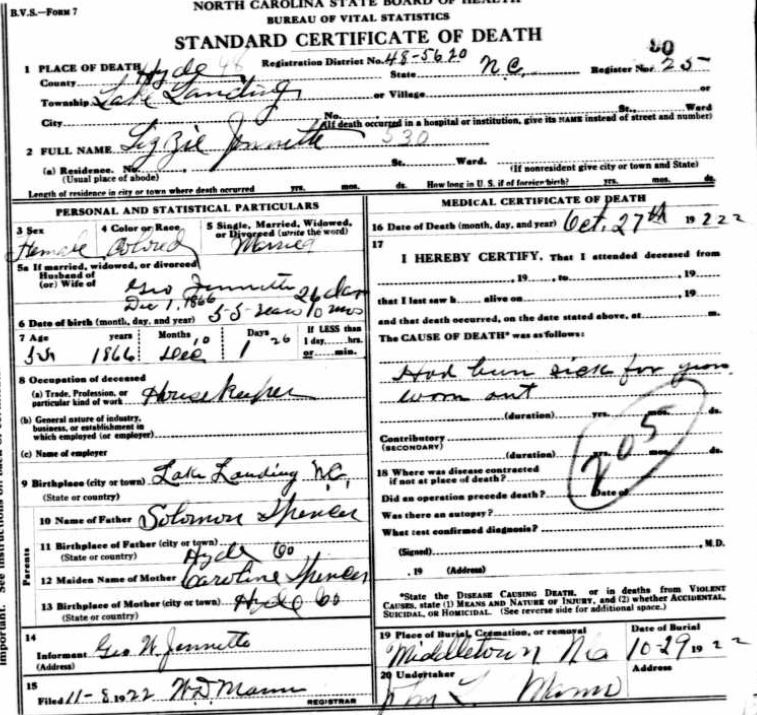 B.V.S.—FORM 7
NORTH CAROLINA STATE BOARD OF HEALTH
BUREAU OF VITAL STATISTICS
STANDARD CERTIFICATE OF DEATH
1 PLACE OF DEATH
Registration District No. 48-5620
80
County Hyde 48
State N.C.
Register No. 25
Township Lake Landing or Village or
City No. St., Ward
(If death occurred in a hospital or institution, give its NAME instead of street and number)
2 FULL NAME Lizzie Jennette 530
(a) Residence. No. St. Ward.
(Usual place of abode)
(If nonresident give city or town and State)
Length of residence in city or town where death occurred yrs. mos. ds. How long in U. S. if of foreign birth? yrs. mos. ds.
PERSONAL AND STATISTICAL PARTICULARS
3 Sex 4 Color or Race 5 Single, Married, Widowed, or Divorced (write the word)
Female Colored Married
5a If married, widowed, or divorced
Husband of
(or) Wife of Geo Jennette
Dec 1, 1866 55 years 10 mos 26 days
6 Date of birth (month, day, and year)
7 Age years Months Days If LESS than
1 day, hrs.
or min.
1866 Dec 10 1 26
8 Occupation of deceased
(a) Trade, Profession, or
particular kind of work Housekeeper
(b) General nature of industry,
business, or establishment in
which employed (or employer)
(c) Name of employer
9 Birthplace (city or town) Lake Landing N.C.
(State or country)
Parents
10 Name of Father Solomon Spencer
11 Birthplace of Father (city or town)
(State or country) Hyde Co
12 Maiden Name of Mother Caroline Spencer
13 Birthplace of Mother (city or town) Hyde Co
(State or country)
14
Informant Geo W. Jennette
(Address)
15
Filed 11-8, 1922 W.D. Mann
REGISTRAR
MEDICAL CERTIFICATE OF DEATH
16 Date of Death (month, day, and year) Oct. 27th 1922
17
I HEREBY CERTIFY, That I attended deceased from
, 19 , to , 19
that I last saw h alive on , 19
and that death occurred, on the date stated above, at m.
The CAUSE OF DEATH* was as follows:
Had bun sick for years
worn out
(duration) yrs. mos. ds.
Contributory
(SECONDARY)
(duration) yrs. mos. ds.
205
18 Where was disease contracted
if not at place of death?
Did an operation precede death? Date of
Was there an autopsy?
What test confirmed diagnosis?
(Signed) , M.D.
, 19 (Address)
*State the DISEASE CAUSING DEATH, or in deaths from VIOLENT
CAUSES, state (1) MEANS AND NATURE OF INJURY, and (2) whether ACCIDENTAL,
SUICIDAL, OR HOMICIDAL. (See reverse side for additional space.)
19 Place of Burial, Cremation, or removal Date of Burial
Middletown N.C. 10-29 1922
20 Undertaker Address
John L. Mann